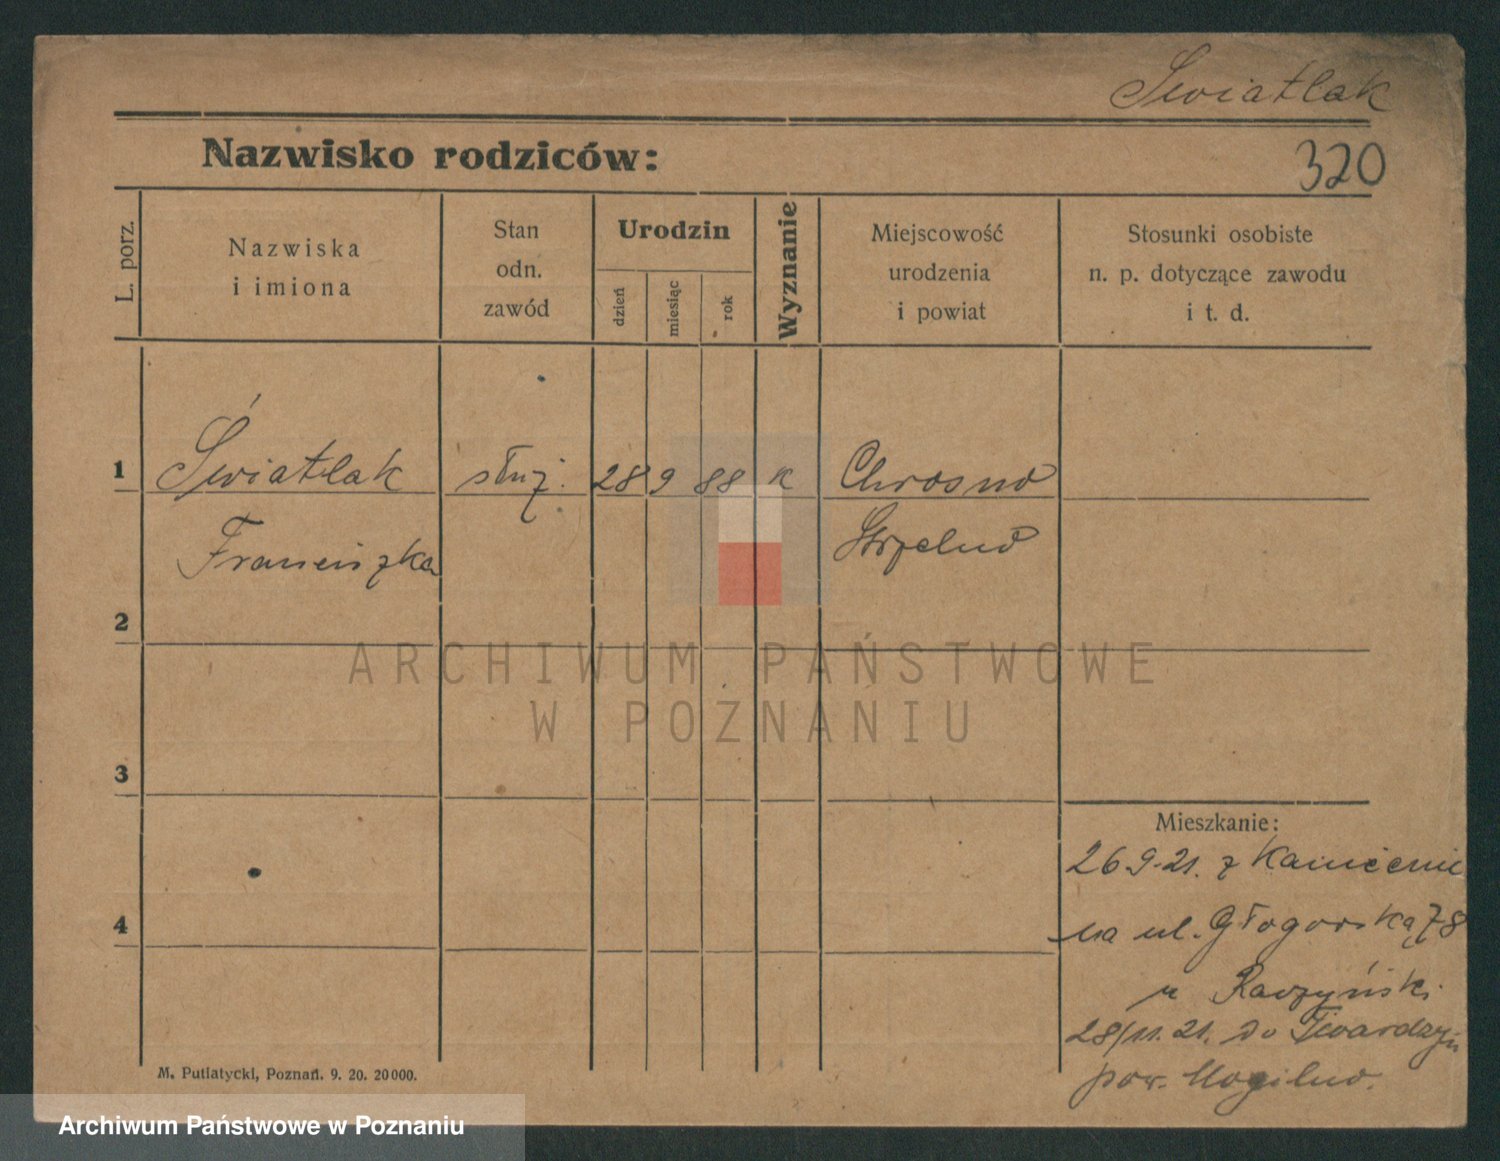 Światlak
320
Nazwisko rodziców:
L. porz.
Nazwiska
i imiona
Stan
odn.
zawód
Urodzin
dzień
miesiąc
rok
Wyznanie
Miejscowość
urodzenia
i powiat
Stosunki osobiste
n. p. dotyczące zawodu
i t. d.
1 Światlak służ. 28 9 88 K Chrosno
Franciszka Strzelno
2
ARCHIWUM PAŃSTWOWE
W POZNANIU
3
Mieszkanie:
26.9.21. z
4
na ul. Głogorską 78
u Raczyński
28/11.21. do Twardzyn
pow. Mogilno.
M. Putiatycki, Poznań. 9. 20. 20000.
Archiwum Państwowe w Poznaniu